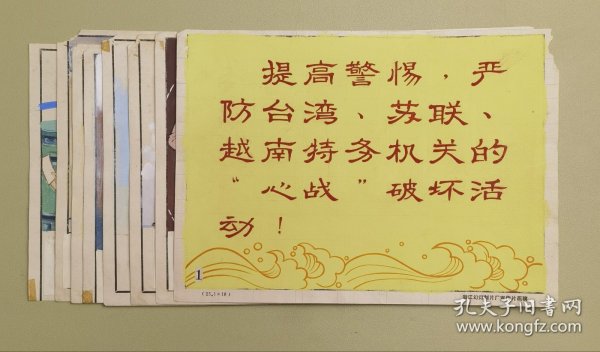 提高警惕，严
防台湾、苏联、
越南特务机关的
“心战”破坏活
动！
1
孔夫子旧书网
www.kongfz.com